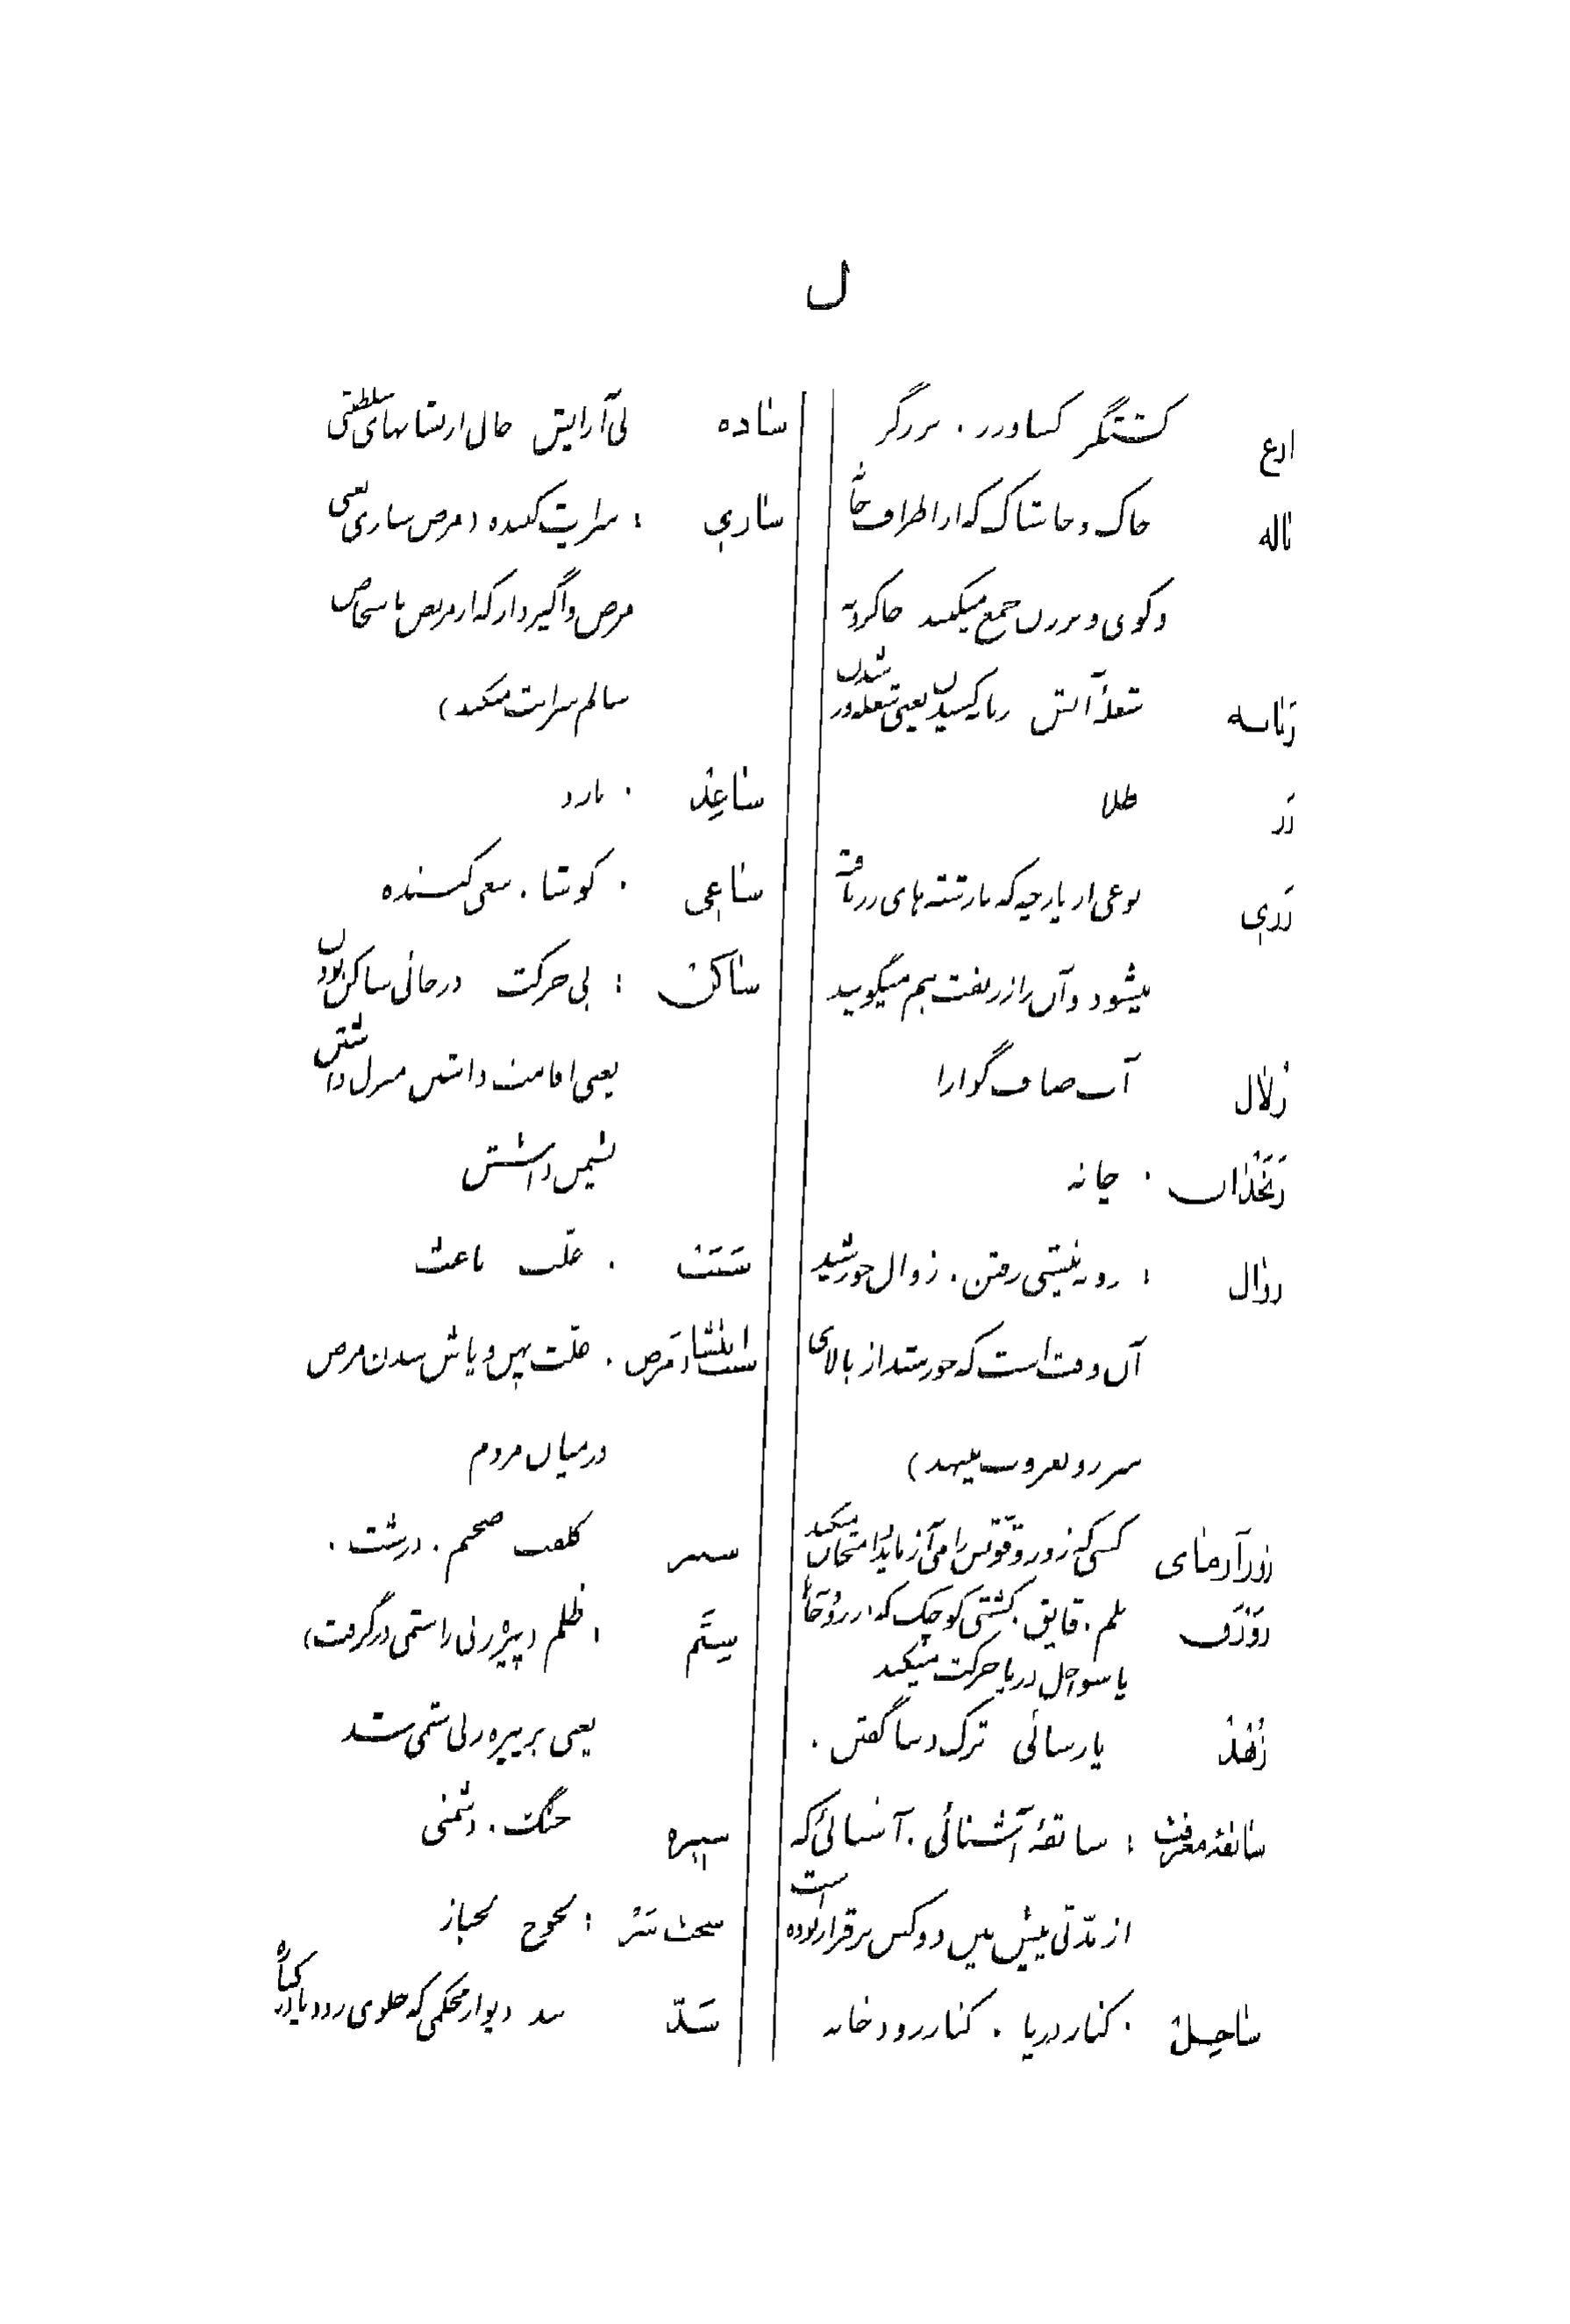 ل
زارع کشتگر کشاورز . برزگر
زباله خاک و خاشاک که از اطراف خانه
و کوی و برزن جمع میکنند خاکروبه
زبانه شعلهٔ آتش زبانه کشیدن یعنی شعله‌ور شدن
زَر طلا
زَری نوعی از پارچه که با رشته های زر بافته
میشود و آن را زربفت هم میگویند
زُلال آب صاف گوارا
زَنَخدان . چانه
زوال : رو به نیستی رفتن . زوال خورشید
آن وقت است که خورشید از بالای
سر رو بغروب مینهد )
زورآزمای کسی که زور و قوتش را می آزماید امتحان میکند
زَورَق بلم . قایق . کشتی کوچک که در رودخانه
یا سواحل دریا حرکت میکند
زُهد پارسائی ترک دنیا گفتن .
سابقهٔ معرفت : سابقهٔ آشنائی . آشنائی که
از مدّتی پیش بین دو کس برقرار بوده است
ساحِل . کنار دریا . کنار رودخانه
ساده بی آرایش خالی از نشانهای سلطنتی
ساری : سرایت کننده ( مرض ساری یعنی
مرض واگیردار که از مریض باشخاص
سالم سرایت میکند )
ساعِد . بازو
ساعی . کوشا . سعی کننده
ساکن : بی حرکت در خانی ساکن بودن
یعنی اقامت داشتن منزل داشتن
نشیمن داشتن
سَبَب . علّت باعث
سبب انتشار مَرَض . علّت پهن و پاش شدن مرض
در میان مردم
ستبر کلفت ضخیم . درشت .
سِتَم : ظلم ( پیره زنی را ستمی در گرفت )
یعنی بر پیره زنی ستمی شد
ستیزه جنگ . دشمنی
سخت سَر : لجوج لجباز
سَدّ بند دیوار محکمی که جلوی رود یا دریا